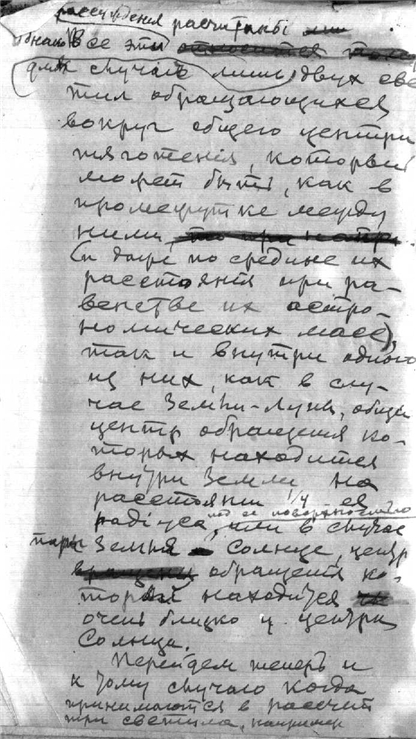 рассуждения расчитаны
однако Все эти
для случая лишь двух све
тил обращающихся
вокруг общего центра
тяготенія, который
может быть, как в
промежутке между
ними
(и даже по средине их
расстоянія при ра-
венстве их астро-
номических масс),
так и внутри одного
из них, как в слу-
чае Земли-Луны, общий
центр обращения ко-
торых находится
внутри Земли на
расстоянии 1/4 ея
радіуса под ее поверхностью, или в случае
пары Земля - Солнце, центр
обращения ко-
торой находится
очень близко к центру
Солнца.
Перейдем теперь и
к тому случаю когда
принимаются в рассчет
три светила, например